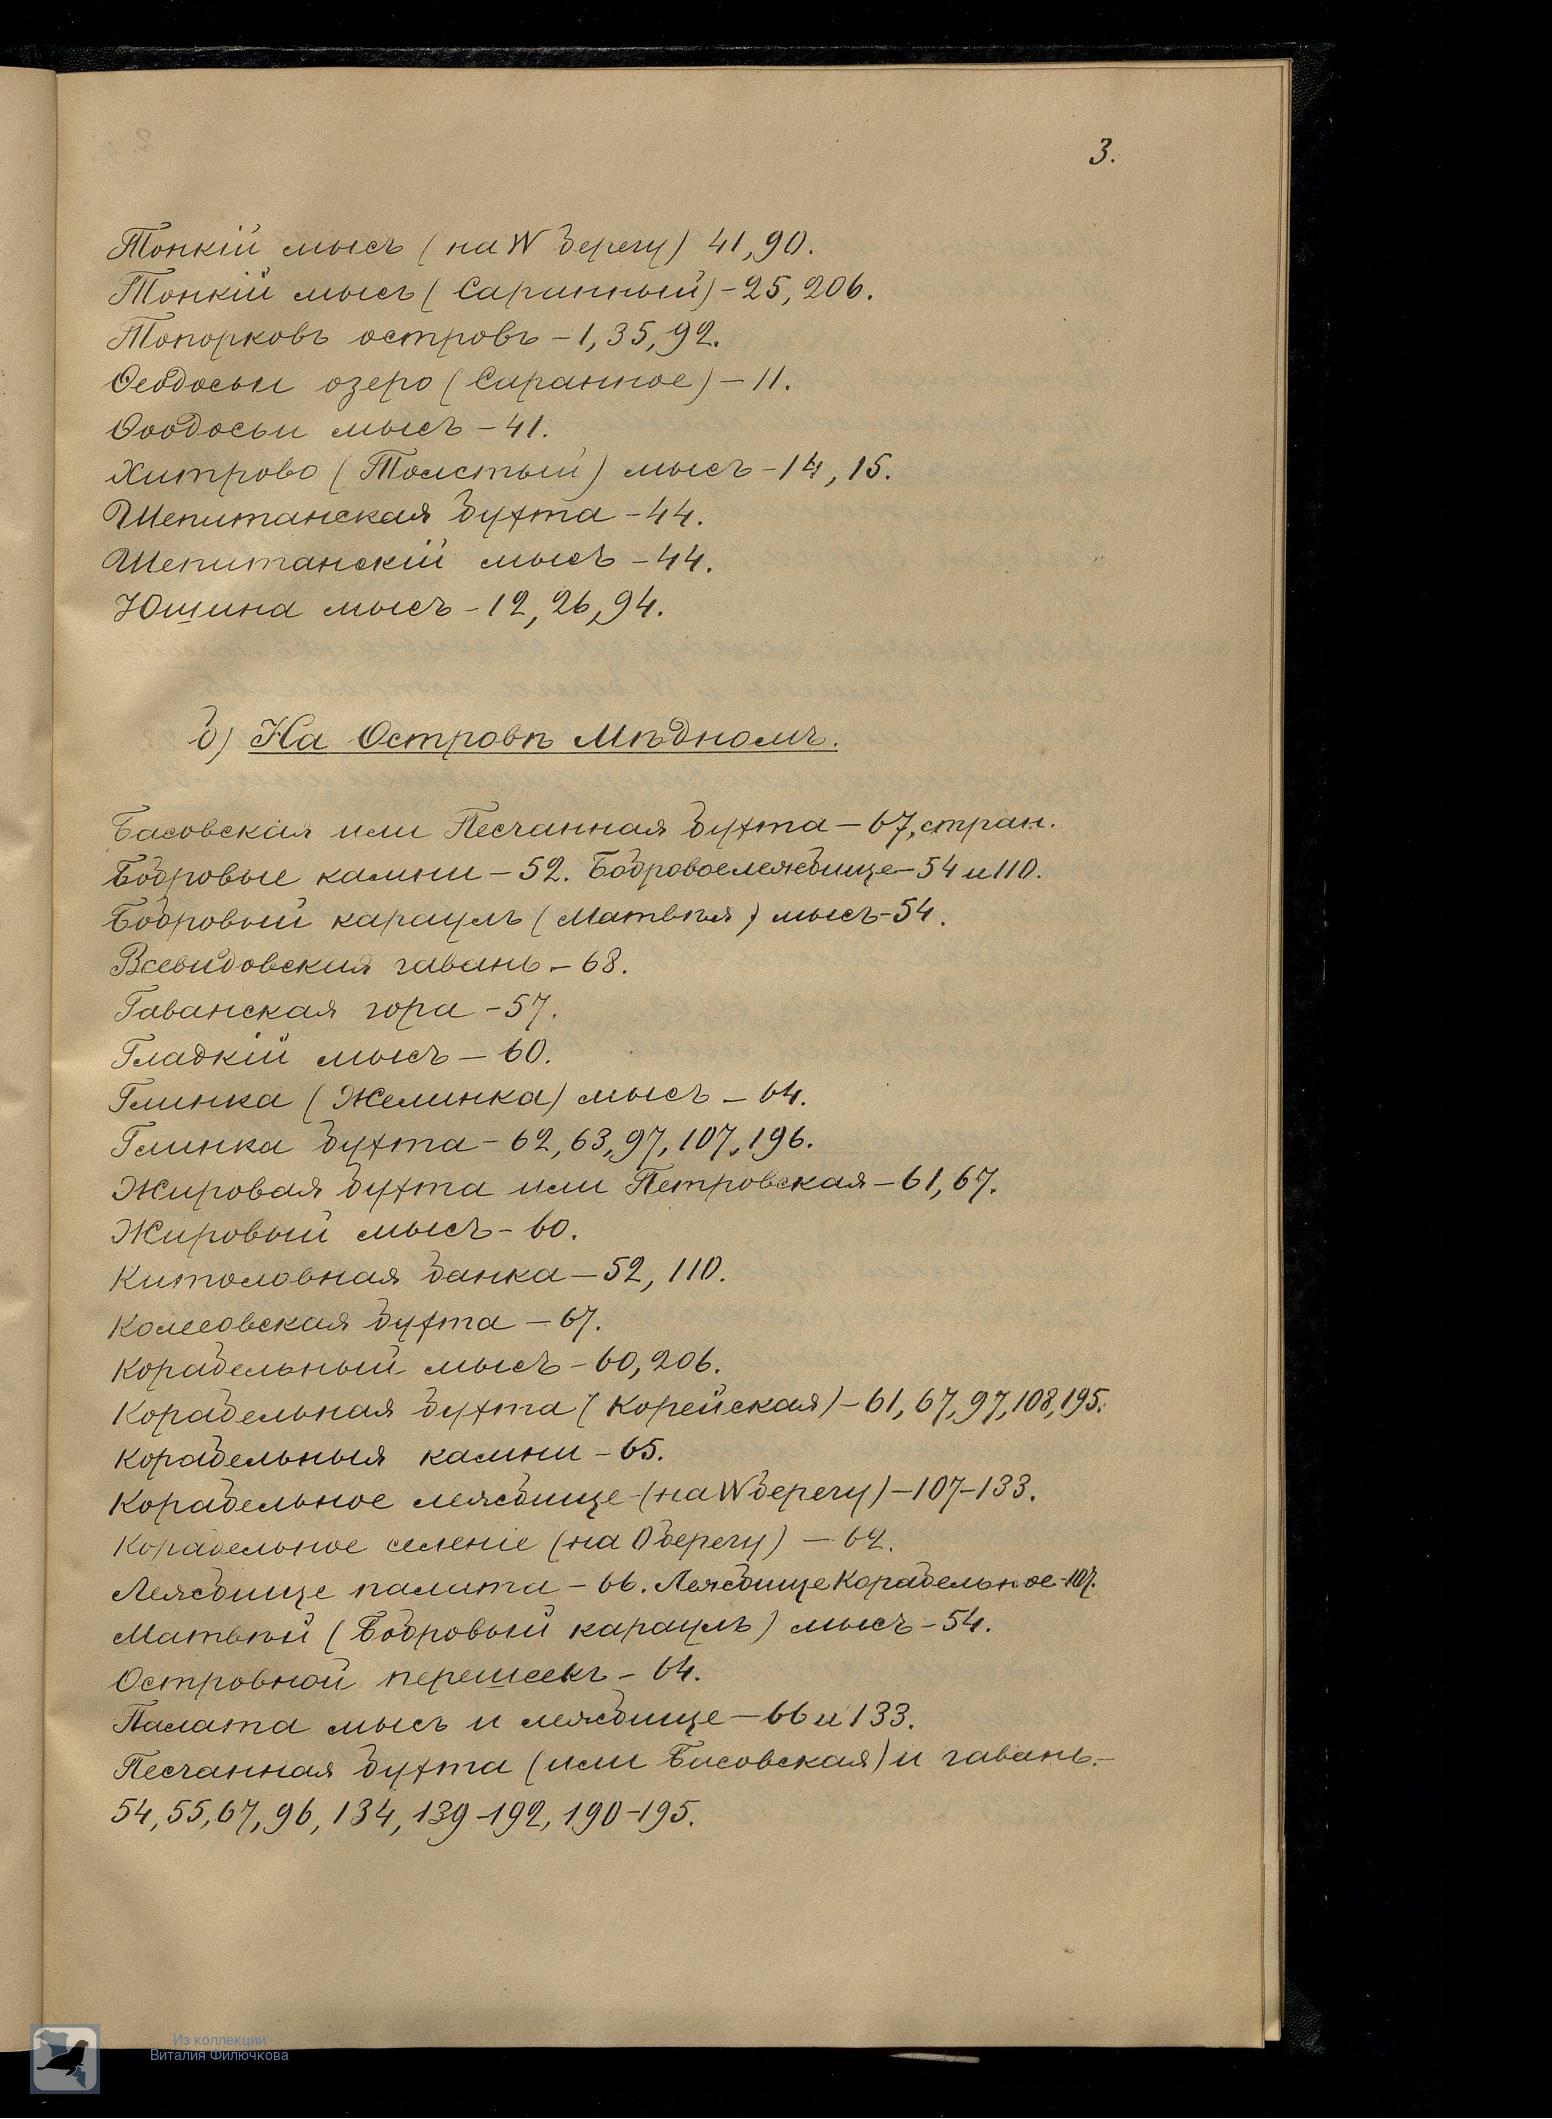 3.
Тонкій мысъ (на W берегу) 41, 90.
Тонкій мысъ (Саранный) - 25, 206.
Топорковъ островъ - 1, 35, 92.
Ѳеодосьи озеро (Саранное) - 11.
Ѳеодосьи мысъ - 41.
Хитрово (Толстый) мысъ - 14, 15.
Шепитанская бухта - 44.
Шепитанскій мысъ - 44.
Юшина мысъ - 12, 26, 94.
б) На Островѣ Мѣдномъ.
Басовская или Песчанная бухта - 67, стран.
Бобровые камни - 52. Бобровое лежбище - 54 и 110.
Бобровый караулъ (Матвѣя) мысъ - 54.
Всевидовская гавань - 68.
Гаванская гора - 57.
Гладкій мысъ - 60.
Глинка (Жглинка) мысъ - 64.
Глинка бухта - 62, 63, 97, 107, 196.
Жировая бухта или Петровская - 61, 67.
Жировый мысъ - 60.
Китоловная банка - 52, 110.
Колесовская бухта - 67.
Корабельный мысъ - 60, 206.
Корабельная бухта (Корейская) - 61, 67, 97, 108, 195.
Корабельныя камни - 65.
Корабельное лежбище (на W берегу) - 107-133.
Корабельное селеніе (на O берегу) - 62.
Лежбище палата - 66. Лежбище Корабельное - 107.
Матвѣй (Бобровый караулъ) мысъ - 54.
Островной перешеекъ - 64.
Палата мысъ и лежбище - 66 и 133.
Песчанная бухта (или Басовская) и гавань -
54, 55, 67, 96, 134, 139-192, 190-195.
Из коллекции
Виталия Филючкова